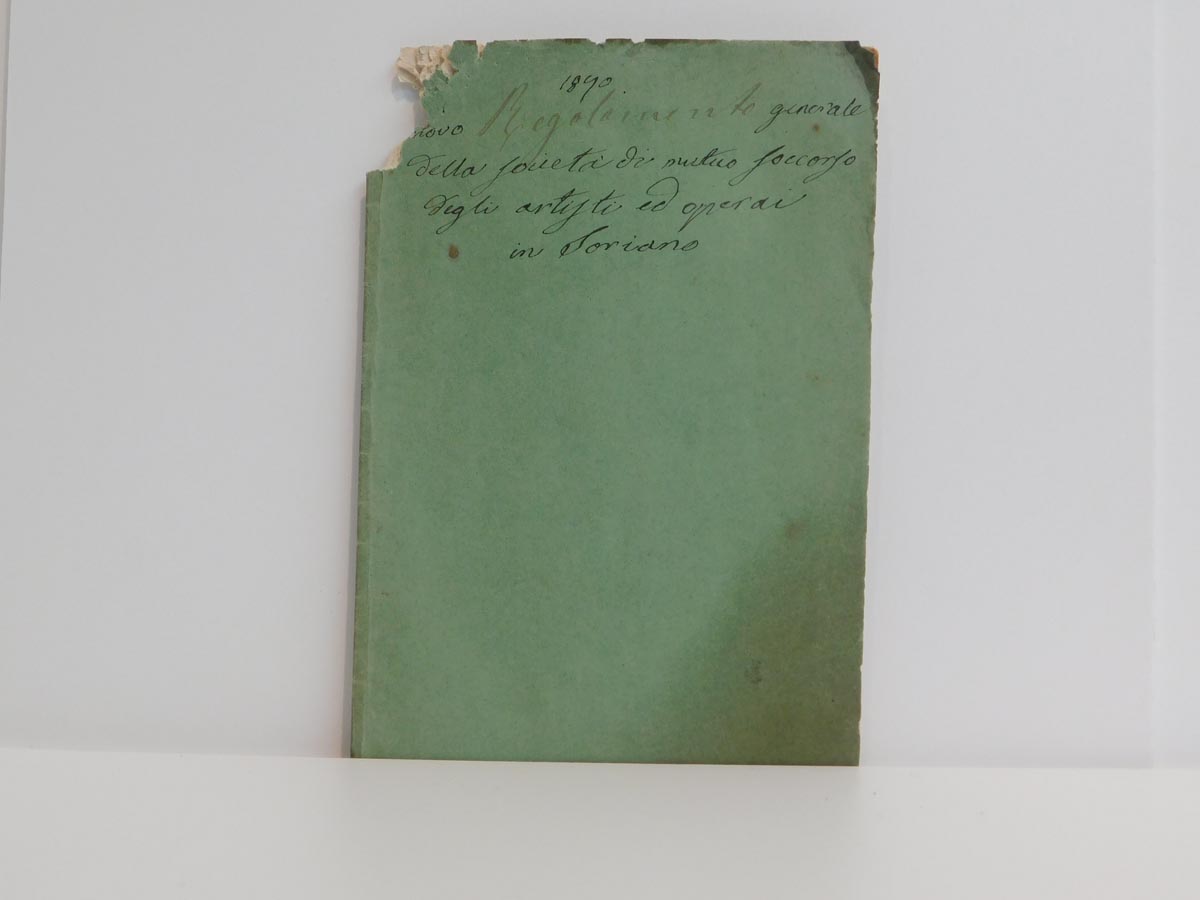 1890
novo Regolamento generale
della società di mutuo soccorso
degli artisti ed operai
in Soriano